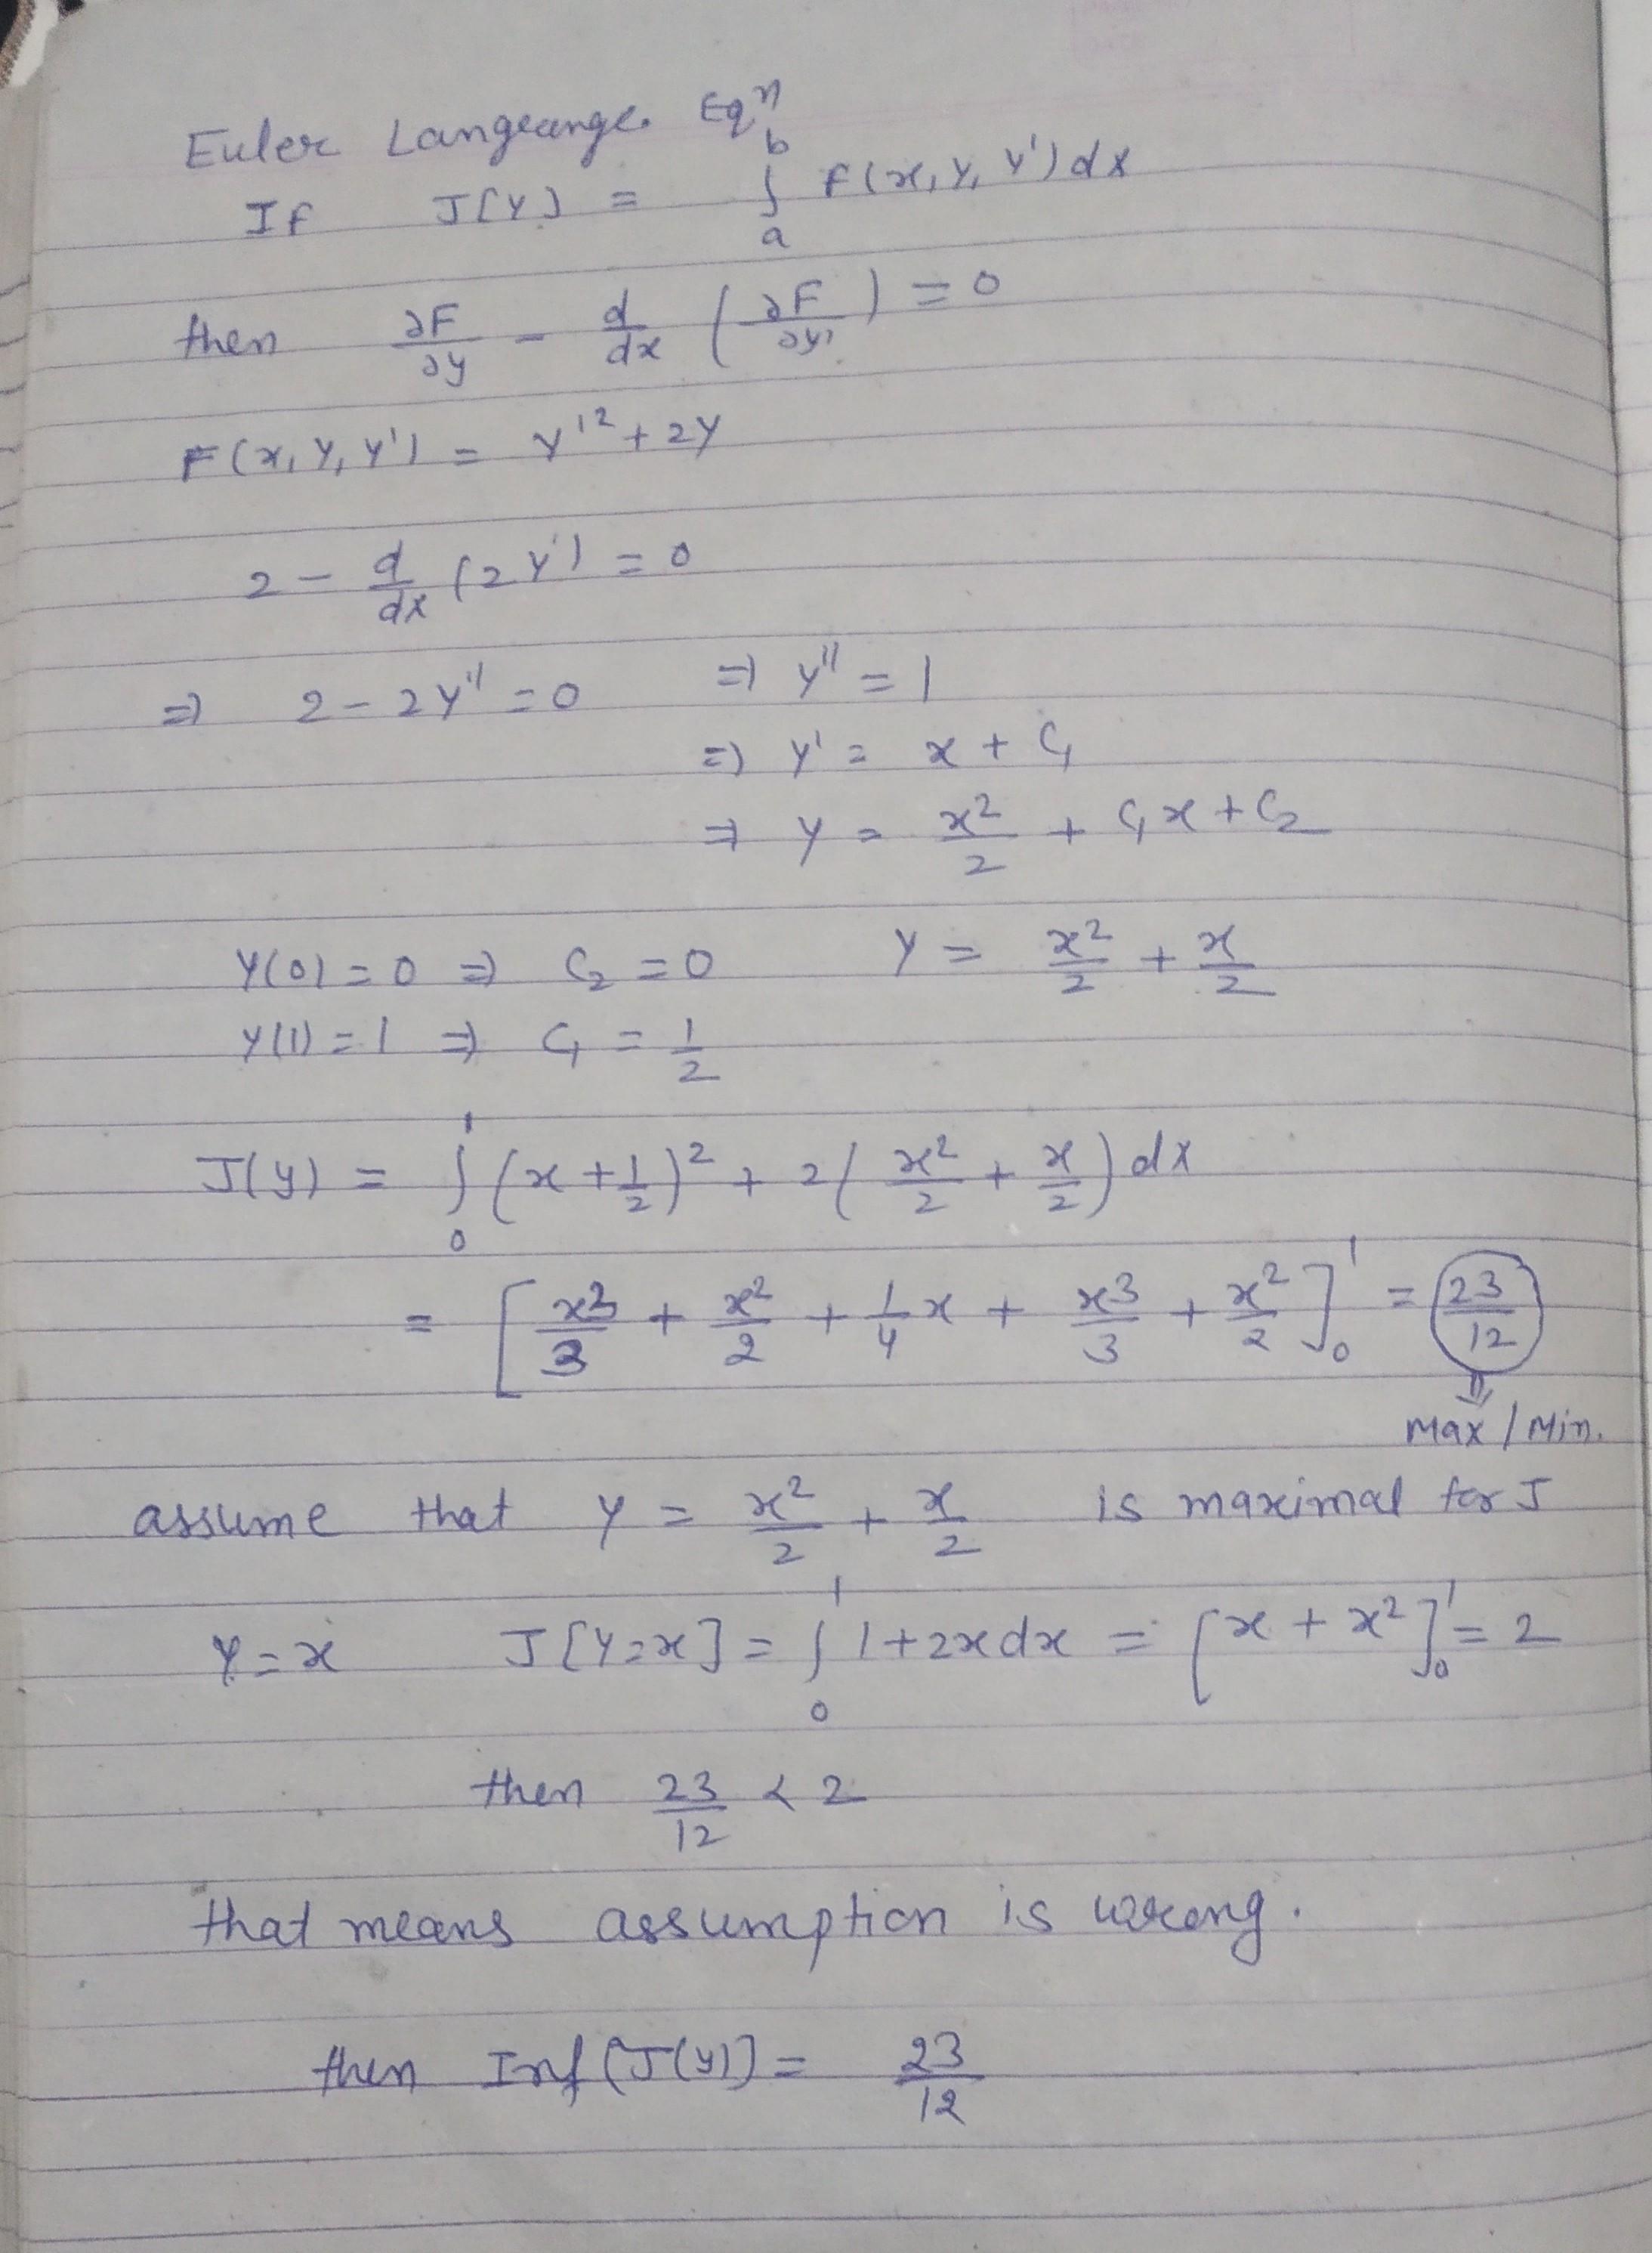 Euler Langrange. Eqⁿ
If J[y] = ∫ₐᵇ F(x, y, y') dx
then ∂F/∂y - d/dx (∂F/∂y') = 0
F(x, y, y') = y'² + 2y
2 - d/dx (2y') = 0
⇒ 2 - 2y'' = 0 ⇒ y'' = 1
⇒ y' = x + C₁
⇒ y = x²/2 + C₁x + C₂
y(0) = 0 ⇒ C₂ = 0 y = x²/2 + x/2
y(1) = 1 ⇒ C₁ = 1/2
J(y) = ∫₀¹ (x + 1/2)² + 2(x²/2 + x/2) dx
= [x³/3 + x²/2 + 1/4 x + x³/3 + x²/2]₀¹ = 23/12
⇓
Max / Min.
assume that y = x²/2 + x/2 is maximal for J
y = x J[y=x] = ∫₀¹ 1 + 2x dx = [x + x²]₀¹ = 2
then 23/12 < 2
that means assumption is wrong.
then Inf [J(y)] = 23/12